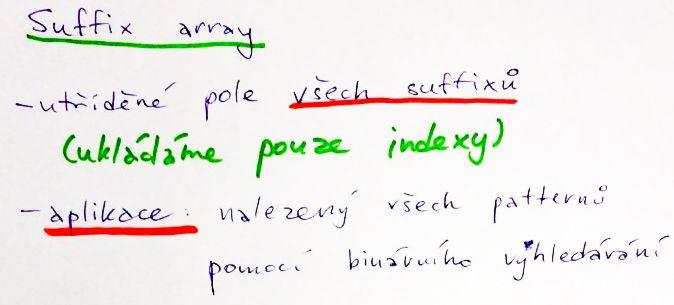 Suffix array
- utříděné pole všech suffixů
(ukládáme pouze indexy)
- aplikace: nalezený všech patternů
pomocí binárního vyhledávání